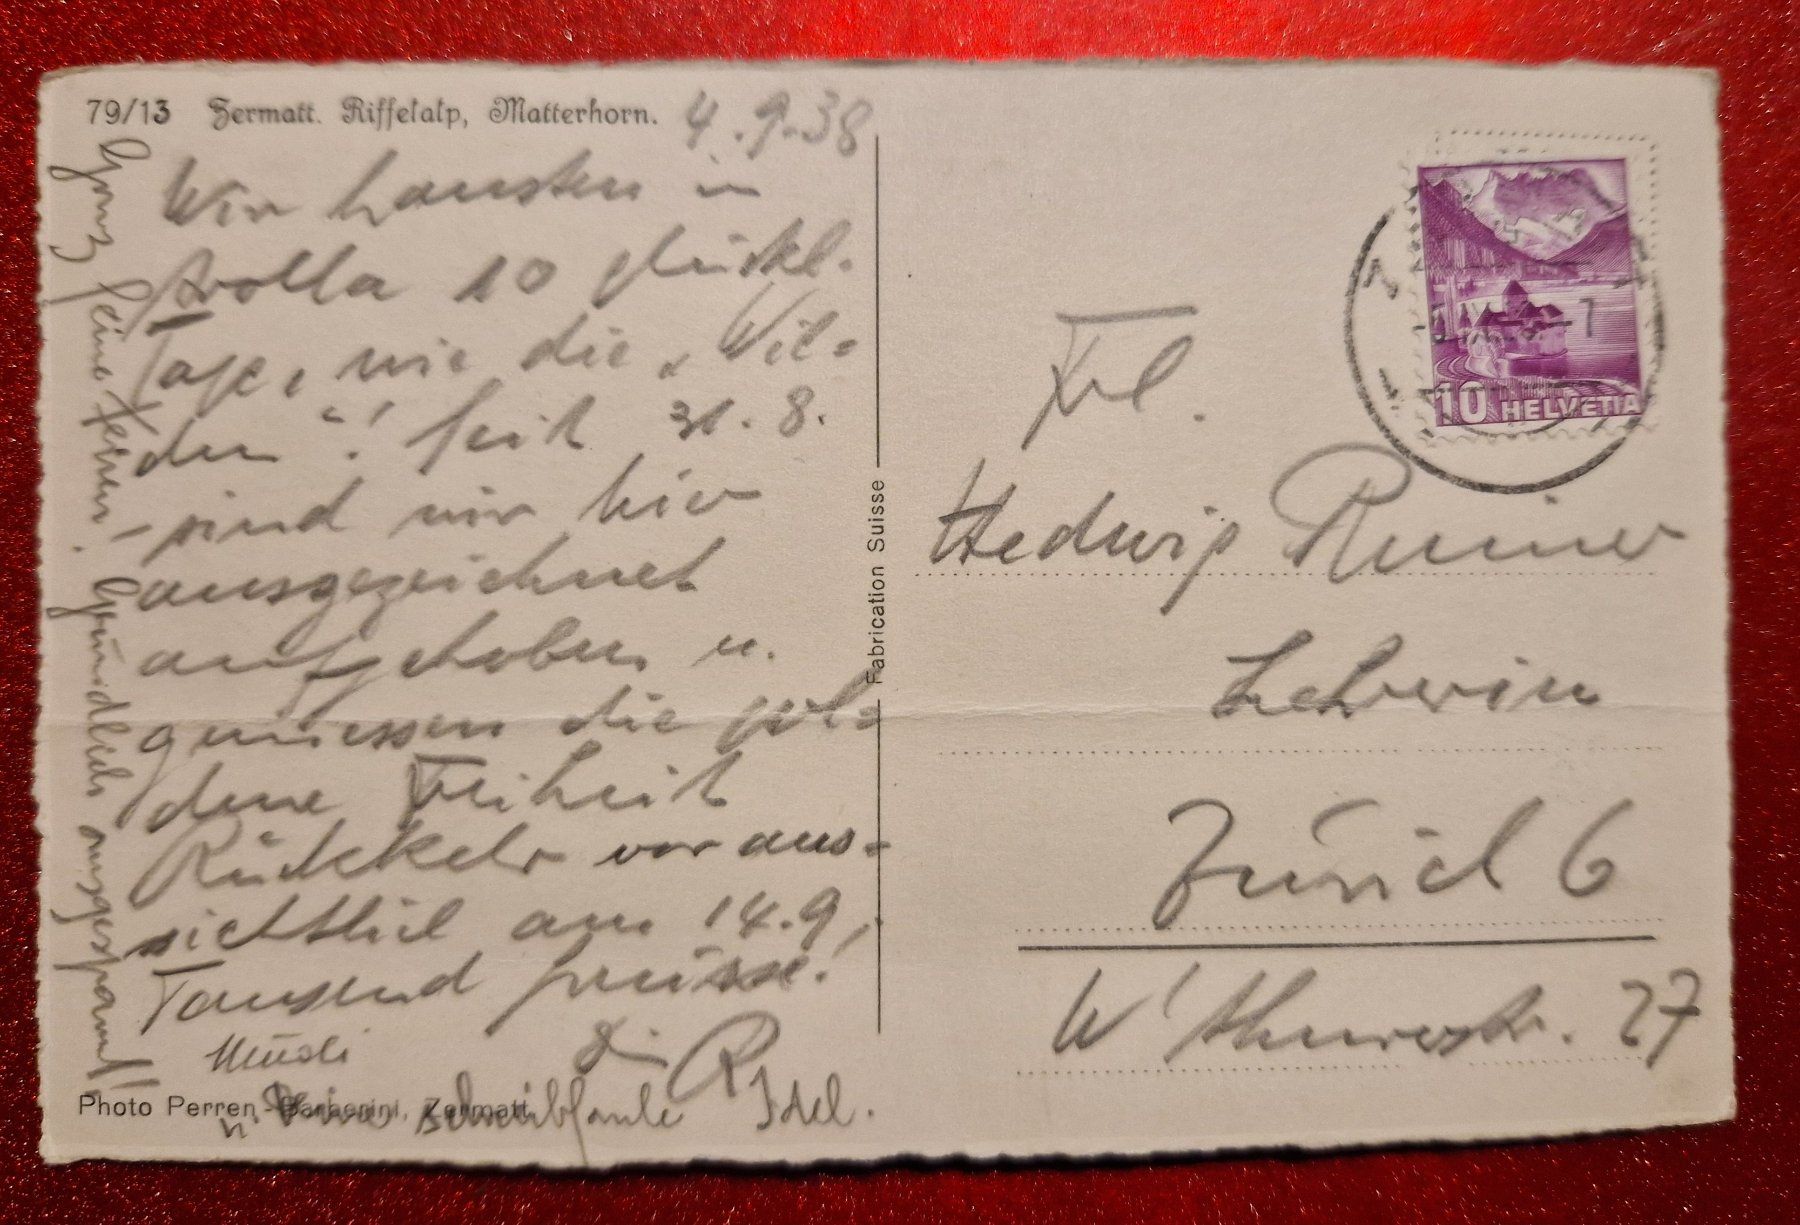 79/13 Zermatt. Riffelalp, Matterhorn.
4.9.38
Wir hausten in
Arolla 10 glückl.
Tage, wie die „Wil=
den“! Seit 31.8.
sind wir hier
ausgezeichnet
aufgehoben u.
geniessen die gol=
dene Freiheit
Rückkehr voraus=
sichtlich am 14.9.
Tausend Grüsse!
R
schreibfaule Idel.
Ganz feine Ferien. Gründlich ausgespannt!
Photo Perren-Barberini, Zermatt.
Fabrication Suisse
10 HELVETIA
Frl.
Hedwig
Lehrerin
Zürich 6
W'thurerstr. 27